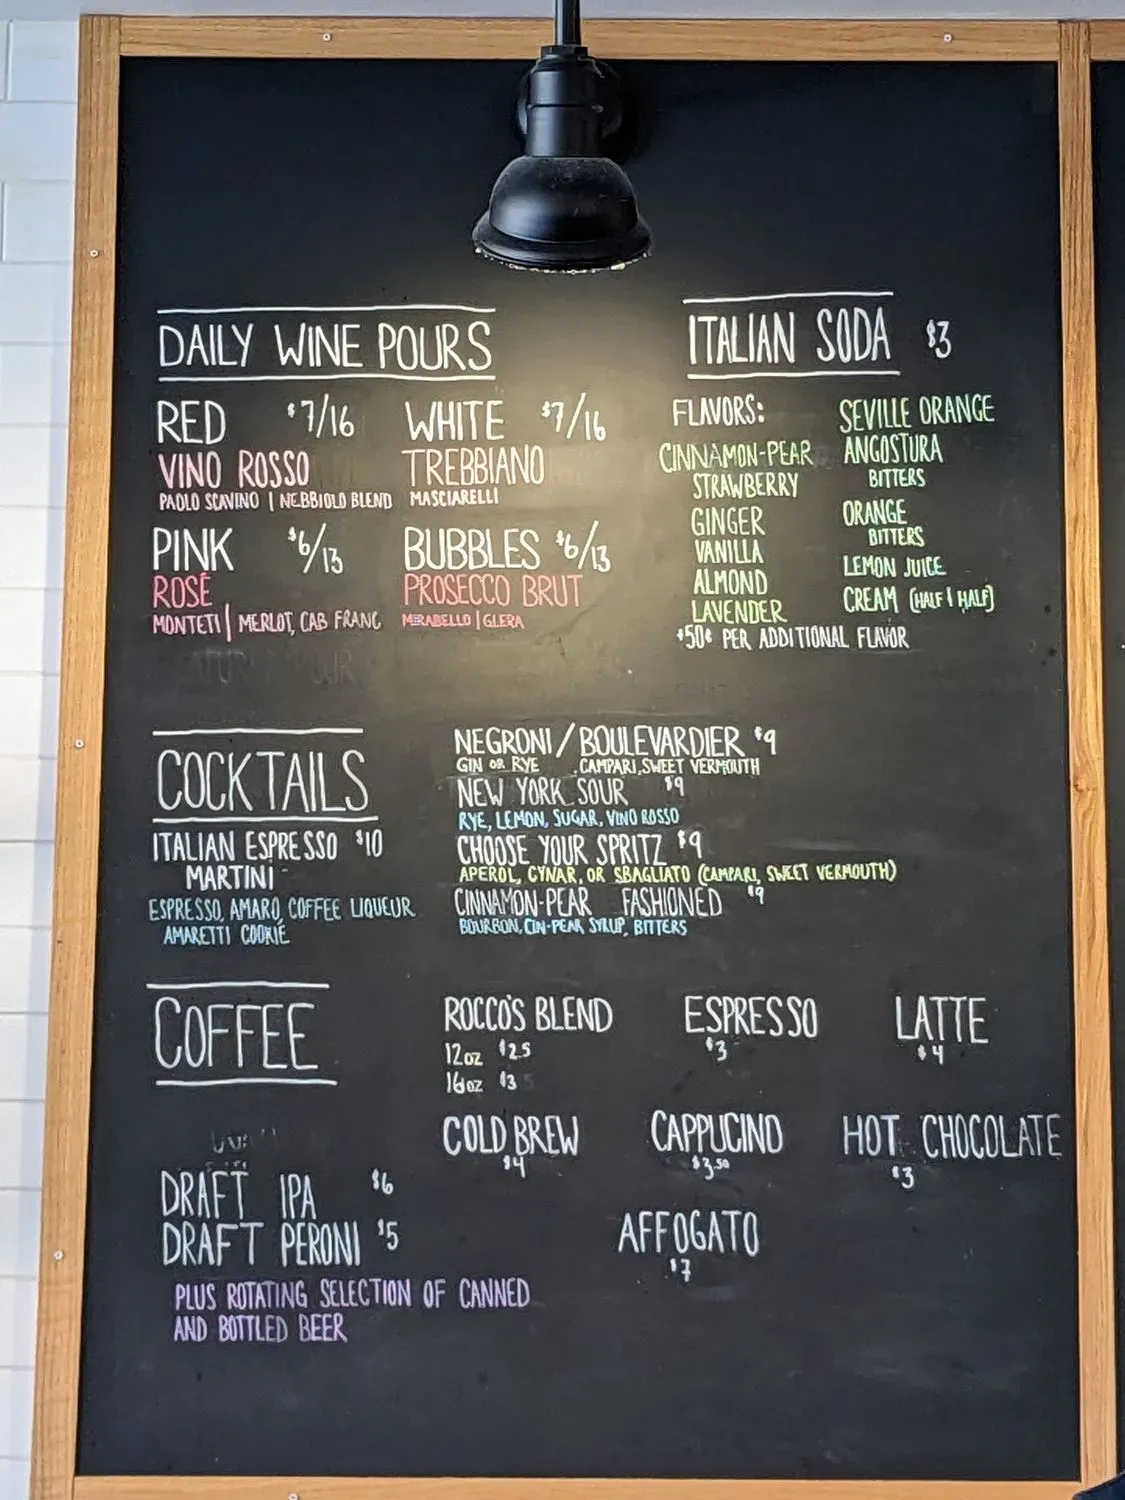 DAILY WINE POURS
RED $7/16
VINO ROSSO
PAOLO SCAVINO | NEBBIOLO BLEND
WHITE $7/16
TREBBIANO
MASCIARELLI
PINK $6/13
ROSÉ
MONTETI | MERLOT, CAB FRANC
BUBBLES $6/13
PROSECCO BRUT
MIRABELLO | GLERA
ITALIAN SODA $3
FLAVORS:
CINNAMON-PEAR
STRAWBERRY
GINGER
VANILLA
ALMOND
LAVENDER
SEVILLE ORANGE
ANGOSTURA
BITTERS
ORANGE
BITTERS
LEMON JUICE
CREAM (HALF | HALF)
+50¢ PER ADDITIONAL FLAVOR
COCKTAILS
ITALIAN ESPRESSO $10
MARTINI
ESPRESSO, AMARO, COFFEE LIQUEUR
AMARETTI COOKIE
NEGRONI / BOULEVARDIER $9
GIN OR RYE , CAMPARI, SWEET VERMOUTH
NEW YORK SOUR $9
RYE, LEMON, SUGAR, VINO ROSSO
CHOOSE YOUR SPRITZ $9
APEROL, CYNAR, OR SBAGLIATO (CAMPARI, SWEET VERMOUTH)
CINNAMON-PEAR FASHIONED $9
BOURBON, CIN-PEAR SYRUP, BITTERS
COFFEE
ROCCO'S BLEND
12oz $2.5
16oz $3
ESPRESSO
$3
LATTE
$4
COLD BREW
$4
CAPPUCINO
$3.50
HOT CHOCOLATE
$3
AFFOGATO
$7
DRAFT IPA $6
DRAFT PERONI $5
PLUS ROTATING SELECTION OF CANNED
AND BOTTLED BEER